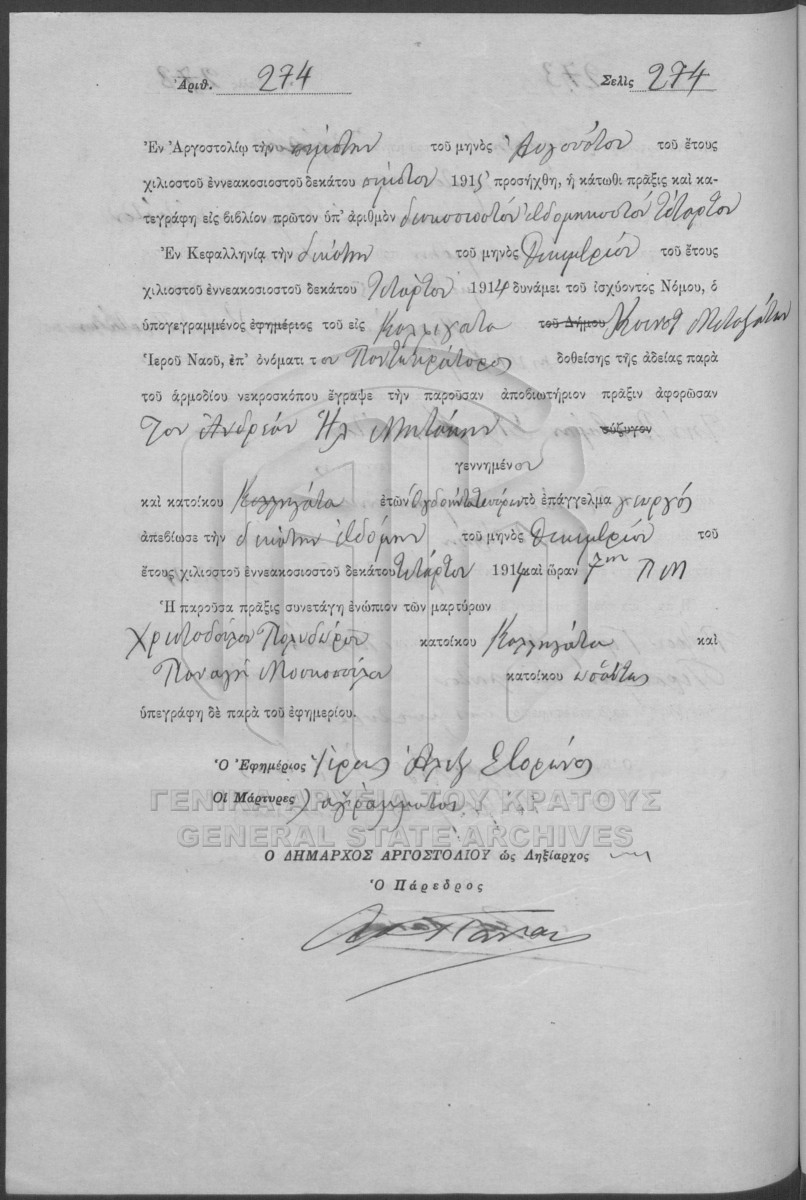 Ἀριθ. 274 Σελὶς 274
Ἐν Ἀργοστολίῳ τὴν πέμπτην τοῦ μηνὸς Αὐγούστου τοῦ ἔτους
χιλιοστοῦ ἐννεακοσιοστοῦ δεκάτου πέμπτου 1915 προσήχθη, ἡ κάτωθι πρᾶξις καὶ κα-
τεγράφη εἰς βιβλίον πρῶτον ὑπ' ἀριθμὸν διακοσιοστόν ἑβδομηκοστόν τέταρτον
Ἐν Κεφαλληνίᾳ τὴν δεκάτην τοῦ μηνὸς Δεκεμβρίου τοῦ ἔτους
χιλιοστοῦ ἐννεακοσιοστοῦ δεκάτου Τετάρτου 1914 δυνάμει τοῦ ἰσχύοντος Νόμου, ὁ
ὑπογεγραμμένος ἐφημέριος τοῦ εἰς Κολλιγάτα τοῦ Δήμου Κοινοτ Μεταξάτων
Ἱεροῦ Ναοῦ, ἐπ' ὀνόματι τ ου Παντοκράτορος δοθείσης τῆς ἀδείας παρὰ
τοῦ ἁρμοδίου νεκροσκόπου ἔγραψε τὴν παροῦσαν ἀποβιωτήριον πρᾶξιν ἀφορῶσαν
Τον Ἀνδρέαν Ηλ σύζυγον
γεννημένου
καὶ κατοίκου Κολλιγάτα ἐτῶν τὸ ἐπάγγελμα γεωργός
ἀπεβίωσε τὴν δεκάτην ἑβδόμην τοῦ μηνὸς Δεκεμβρίου τοῦ
ἔτους χιλιοστοῦ ἐννεακοσιοστοῦ δεκάτου τετάρτου 1914 καὶ ὥραν 7ην Π Μ
Ἡ παροῦσα πρᾶξις συνετάγη ἐνώπιον τῶν μαρτύρων
Χριστοδούλου Πολυδώρου κατοίκου Κολλιγάτα καὶ
Παναγή Μοσχοπούλου κατοίκου ὡσαύτως
ὑπεγράφη δὲ παρὰ τοῦ ἐφημερίου.
Ὁ Ἐφημέριος Ἱερεύς Αλεξ Σβορώνος
Οἱ Μάρτυρες ἀγράμματοι
ΓΕΝΙΚΑ ΑΡΧΕΙΑ ΤΟΥ ΚΡΑΤΟΥΣ
GENERAL STATE ARCHIVES
Ο ΔΗΜΑΡΧΟΣ ΑΡΓΟΣΤΟΛΙΟΥ ὡς Ληξίαρχος
Ὁ Πάρεδρος